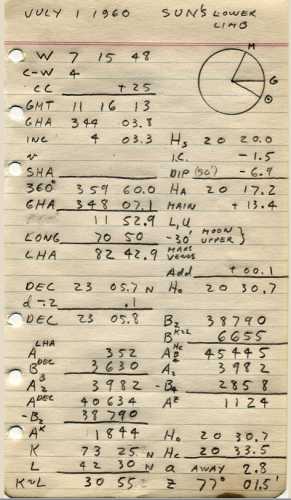 JULY 1 1960 SUN'S LOWER LIMB
M
G
W 7 15 48
C-W 4
CC + 25
GMT 11 16 13
GHA 344 03.8
INC 4 03.3 Hs 20 20.0
v I.C. - 1.5
SHA DIP (50') - 6.9
360° 359 60.0 HA 20 17.2
GHA 348 07.1 MAIN + 13.4
11 52.9 L,U
LONG 70 50 -30' MOON UPPER }
LHA 82 42.9 MARS VENUS
Add + 00.1
DEC 23 05.7 N Ho 20 30.7
d -.2 .1
DEC 23 05.8 B2 38790
BK~L 6655
ALHA 352 AHc 45445
B 3630 A2 3982
A2 3982 -B4 2858
ADEC 40634 AZ 1124
-B2 38790
AK 1844 Ho 20 30.7
K 73 25 N Hc 20 33.5
L 42 30 N a AWAY 2.8
K~L 30 55 Z 77° 01.5'